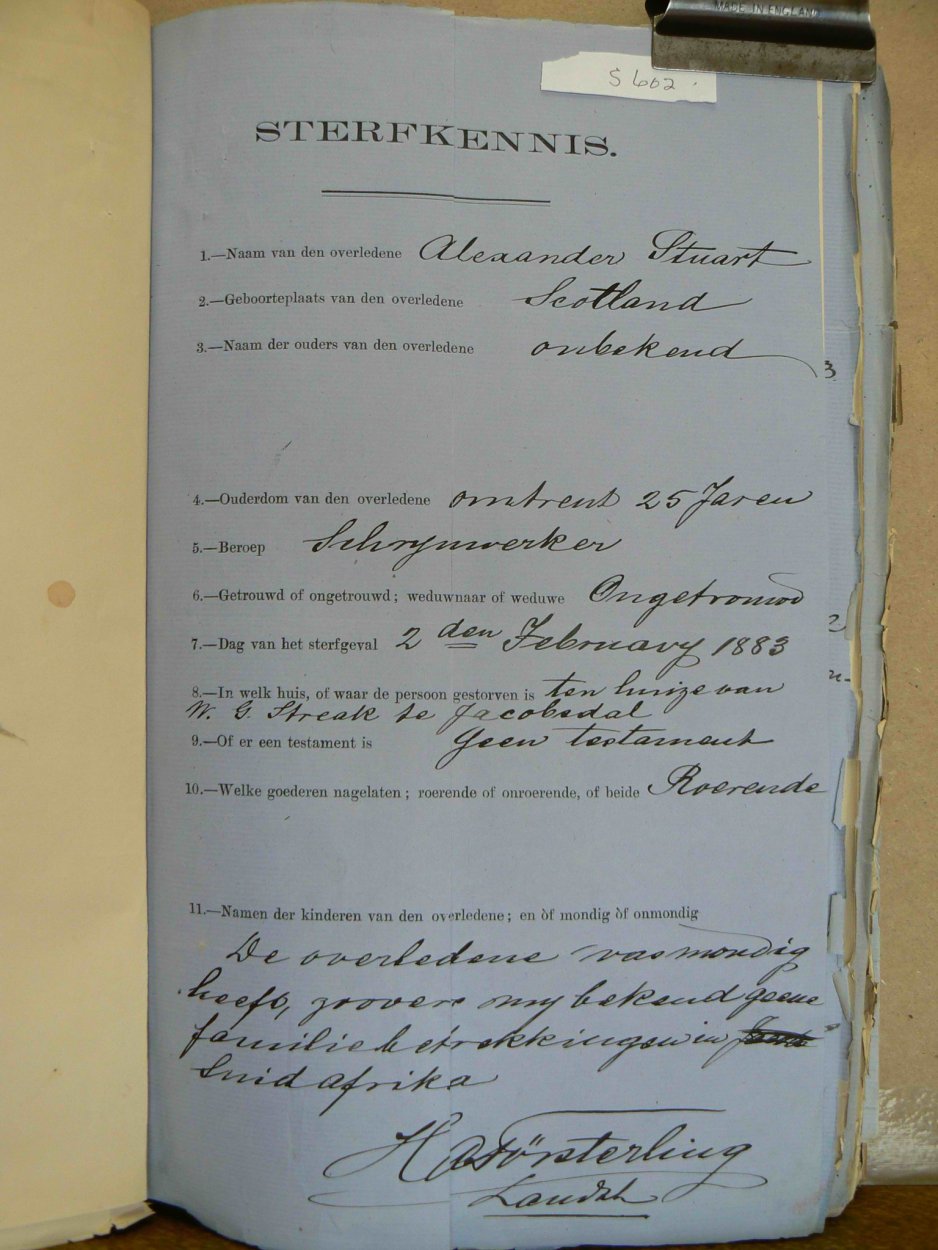 MADE IN ENGLAND
S 602
STERFKENNIS.
1.—Naam van den overledene Alexander Stuart
2.—Geboorteplaats van den overledene Scotland
3.—Naam der ouders van den overledene onbekend
3
4.—Ouderdom van den overledene omtrent 25 Jaren
5.—Beroep Schrynwerker
6.—Getrouwd of ongetrouwd; weduwnaar of weduwe Ongetrouwd
7.—Dag van het sterfgeval 2 den February 1883
8.—In welk huis, of waar de persoon gestorven is ten huize van
W. G. Streak te Jacobsdal
9.—Of er een testament is Geen testament
10.—Welke goederen nagelaten; roerende of onroerende, of beide Roerende
11.—Namen der kinderen van den overledene; en òf mondig òf onmondig
De overledene was mondig
heeft, zoover my bekend geene
familie betrekkingen in
Suid afrika
HA Försterling
Landdt